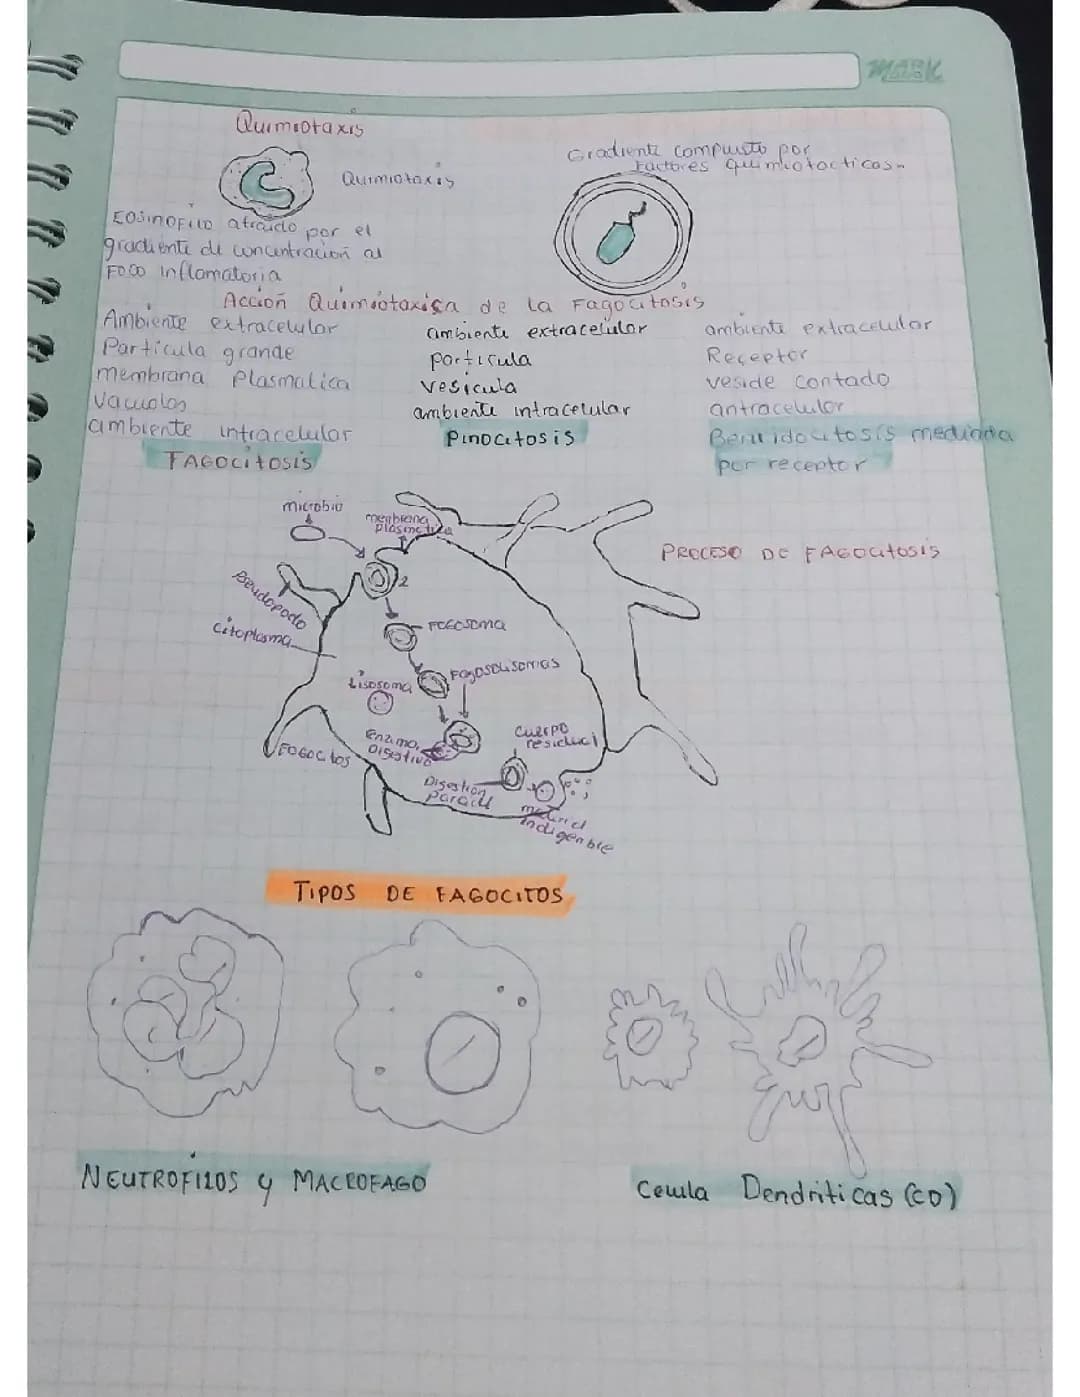 MARK
Quimiotaxis
Quimiotaxis
Gradiente compuesto por
Factores Quimiotacticos
Eosinofilo atraido por el
gradiente de concentracion al
Foco inflamatoria
Accion Quimiotaxica de la Fagocitosis
Ambiente extracelular
Particula grande
membrana Plasmatica
Vacuolas
ambiente intracelular
FAGOCITOSIS
ambiente extracelular
particula
vesicula
ambiente intracelular
Pinocitosis
ambiente extracelular
Receptor
veside contado
antracelular
mediada
por receptor
PROCESO DE FAGOCITOSIS
microbio
membrana
plasmatica
2
Pseudopodo
citoplasma
FOGOSOMA
Fagosolisomas
Lisosoma
Enzima
Digestiva
Cuerpo
residual
FOGOCITOS
Digestion
Parcial
material
indigerible
TIPOS DE FAGOCITOS
NEUTROFILOS y MACROFAGO
Celula Dendriticas (CD)